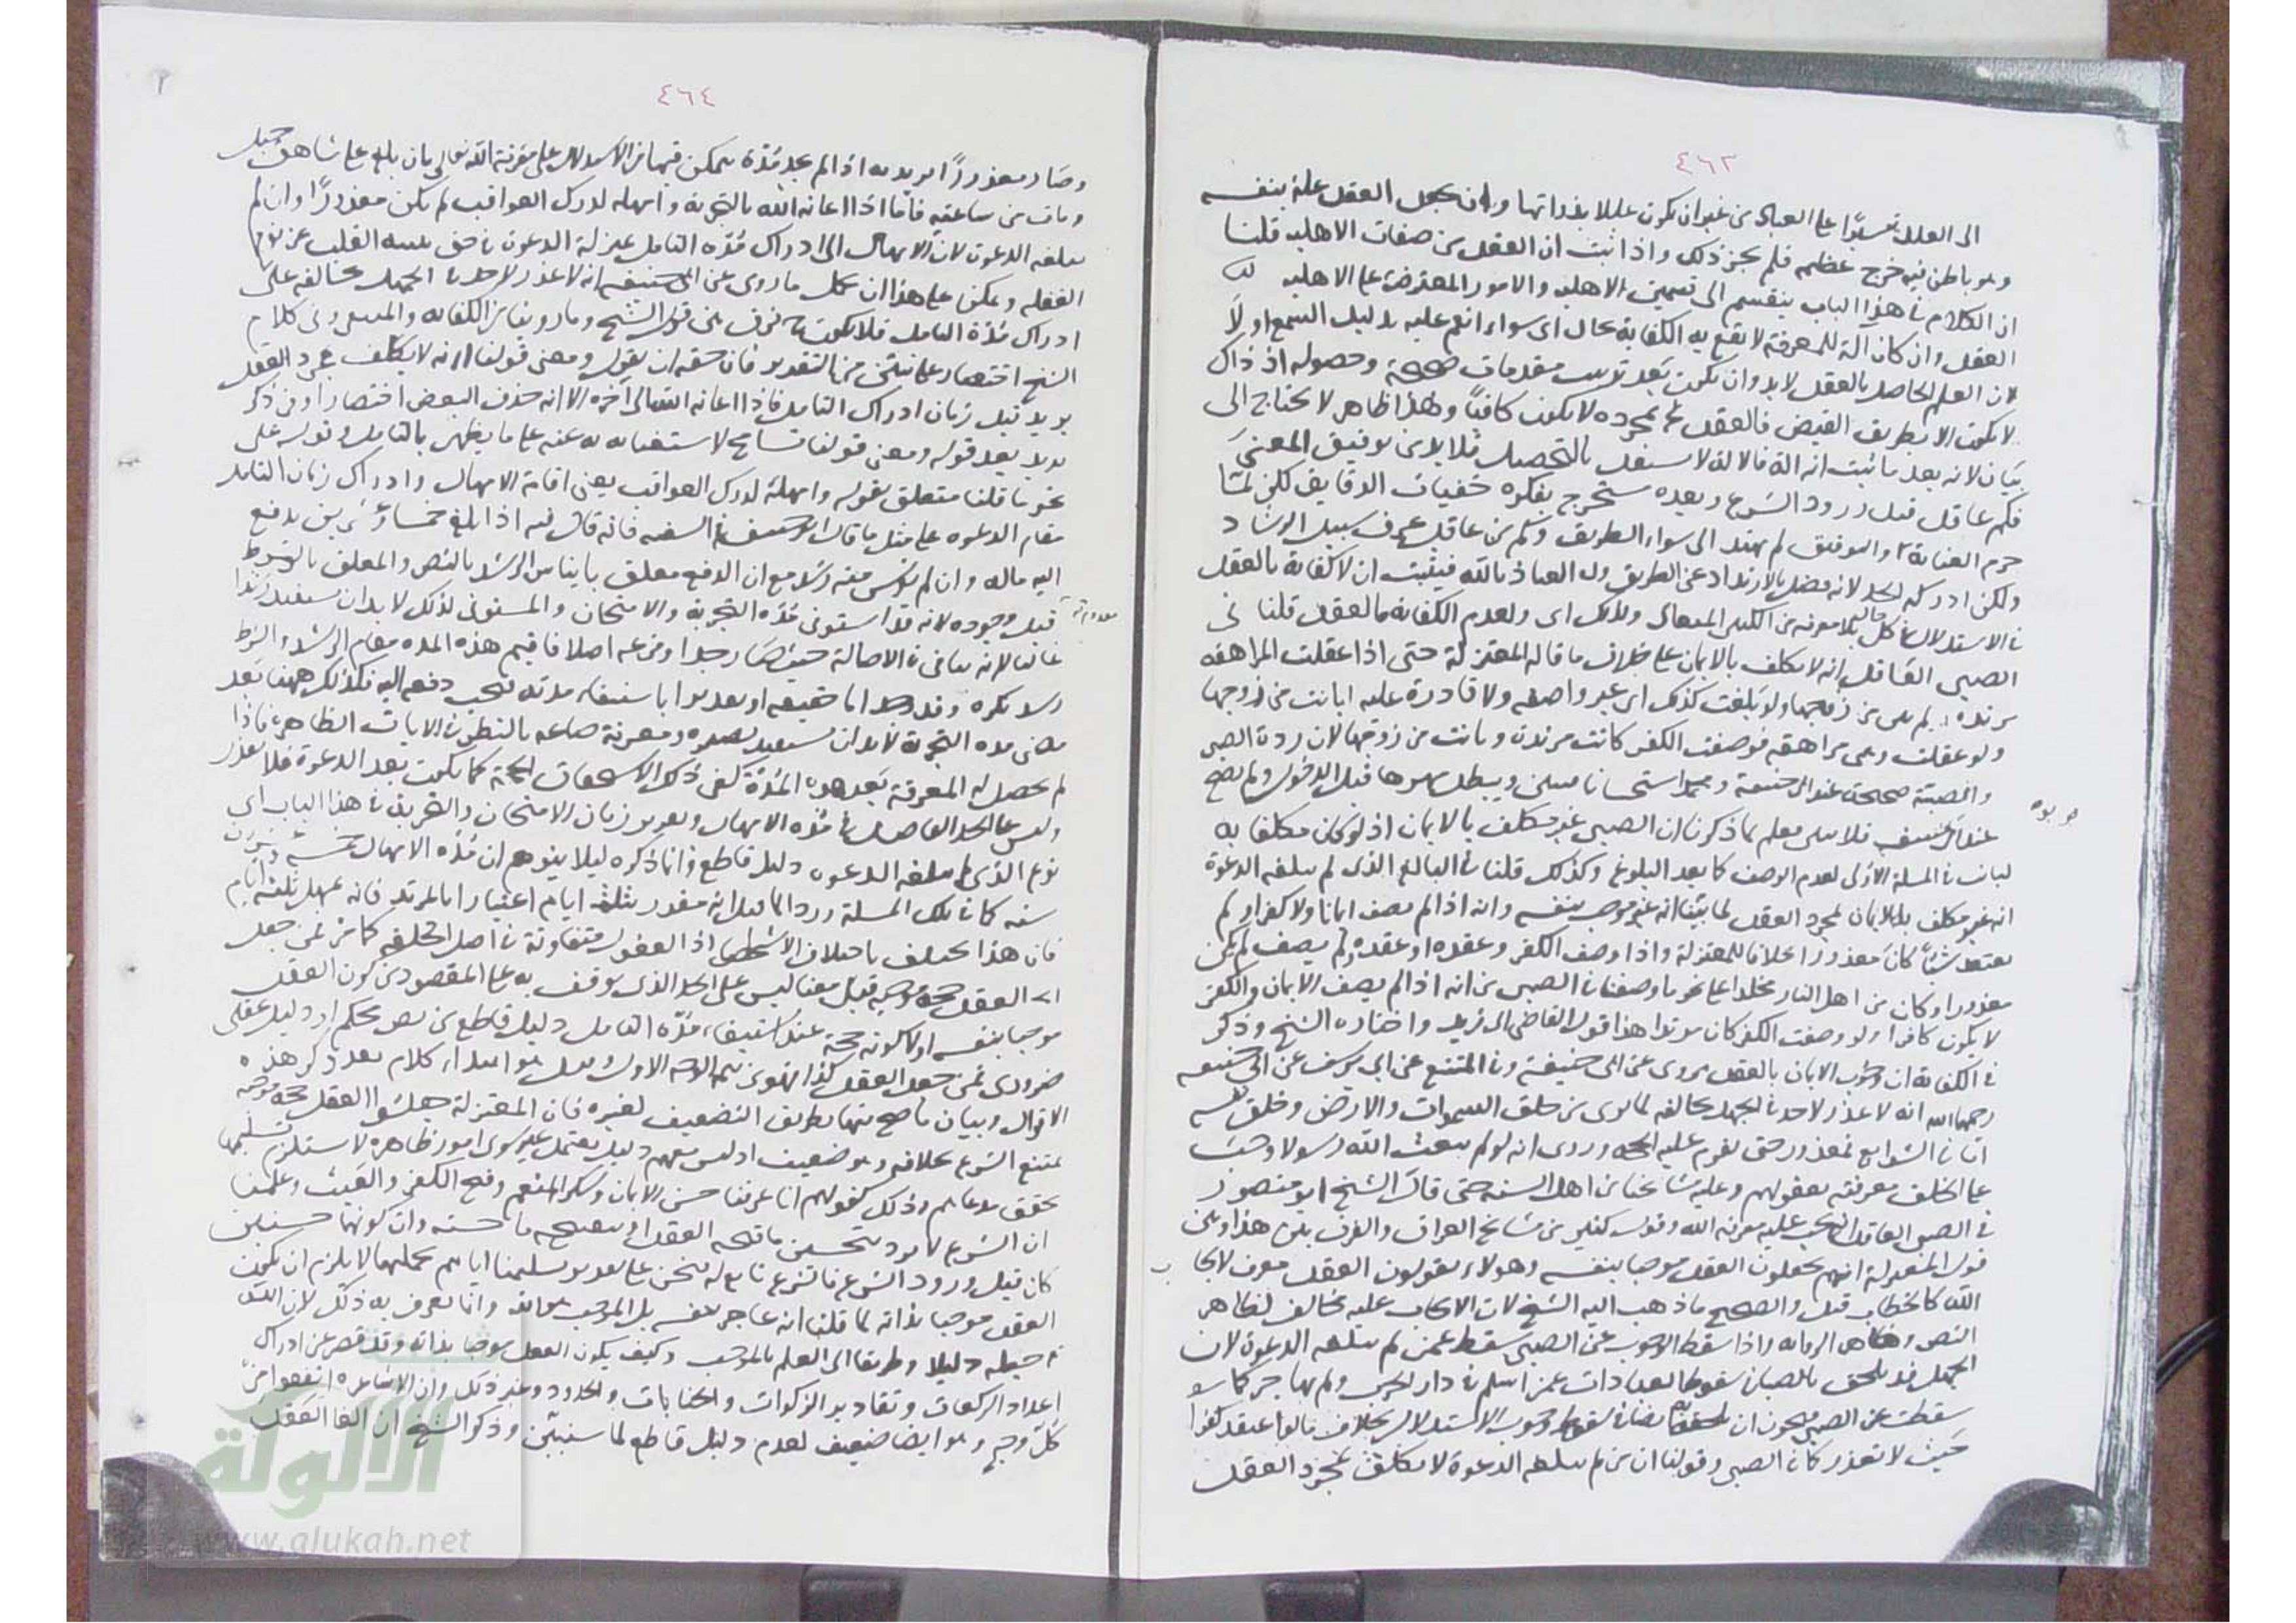 ٤٦٣
الى العلل تيسيرا على العباد من غير ان يكون عللا بذواتها وان نجعل العقل علة بنفسه
وهو باطن فيه حرج عظيم فلم يجز ذلك واذا ثبت ان العقل من صفات الاهلية قلنا
ان الكلام في هذا الباب ينقسم الى قسمين الاهلية والامور المعترضة على الاهلية
العقل وان كان آلة للمعرفة لا يقع به الكفاية بحال اى سواء انضم عليه دليل السمع او لا
لان العلم الحاصل بالعقل لا بد وان يكون بعد ترتيب مقدمات وحصوله اذ ذاك
لا يكون الا بطريق الفيض فالعقل بمجرده لا يكون كافيا وهذا ظاهر لا يحتاج الى
بيان لانه بعد ما ثبت انه آلة فالآلة لا تستقل بالتحصيل فلا بد من توفيق المعنى
فكم عاقل قبل ورود الشرع وبعده يستخرج بفكره خفيات الدقايق لكن لما
حرم العناية والتوفيق لم يهتد الى سواء الطريق وكم من عاقل عرف سبيل الرشاد
ولكن ادركه الخذلان فضل بالارتداد عن الطريق والعياذ بالله فيثبت ان لا كفاية بالعقل
في الاستدلال في كل حال بلا معونة من الكبير المتعال ولذلك اى ولعدم الكفاية بالعقل قلنا في
الصبي العاقل انه لا يكلف بالايمان على خلاف ما قاله المعتزلة حتى اذا عقلت المراهقة
مرتدة ولم تبن من زوجها ولو بلغت كذلك اى غير واصفة ولا قادرة عليه بانت من زوجها
ولو عقلت وهى مراهقة فوصفت الكفر كانت مرتدة وبانت من زوجها لان ردة الصبي
والصبية صحيحة عند ابى حنيفة ومحمد استحسانا ويبطل مهرها قبل الدخول ولم يصح
عند ابى يوسف فلا تبين فعلم بما ذكرنا ان الصبي غير مكلف بالايمان اذ لو كان مكلفا به
لبانت في المسئلة الاولى لعدم الوصف كما بعد البلوغ وكذلك قلنا في البالغ الذى لم تبلغه الدعوة
انه غير مكلف بالايمان بمجرد العقل لما بينا انه غير موجب بنفسه وانه اذا لم يصف ايمانا ولا كفرا ولم
يعتقد شيئا كان معذورا خلافا للمعتزلة واذا وصف الكفر وعقده او عقده ولم يصف لم يكن
معذورا وكان من اهل النار مخلدا على نحو ما وصفنا في الصبي من انه اذا لم يصف الايمان والكفر
لا يكون كافرا ولو وصفت الكفر كان مرتدا هذا قول القاضى ابى زيد واختاره الشيخ وذكر
في الكفاية ان وجوب الايمان بالعقل مروى عن ابى حنيفة وفي المنتقى عن ابى يوسف عن ابى حنيفة
رحمهما الله انه لا عذر لاحد في الجهل بخالقه لما يرى من خلق السموات والارض وخلق نفسه
اما في الشرايع فمعذور حتى تقوم عليه الحجة وروى انه لو لم يبعث الله رسولا لوجب
على الخلق معرفته بعقولهم وعليه مشايخنا من اهل السنة حتى قال الشيخ ابو منصور
في الصبي العاقل انه يجب عليه معرفة الله وقول كثير من مشايخ العراق والفرق بين هذا وبين
قول المعتزلة انهم يجعلون العقل موجبا بنفسه وهولاء يقولون العقل معرف لايجاب
الله كالخطاب قيل والصحيح ما ذهب اليه الشيخ لان الايجاب عليه مخالف لظاهر
النص وظاهر الرواية واذا سقط الوجوب عن الصبي سقط عمن لم تبلغه الدعوة لان
الجهل قد يلحق بالصبا في سقوط العبادات عمن اسلم في دار الحرب ولم يهاجر كما
سقطت عن الصبي فيجوز ان يلحق به ايضا في سقوط وجوب الاستدلال بخلاف ما لو اعتقد كفرا
حيث لا يعذر كما في الصبي وقولنا ان من لم تبلغه الدعوة لا يكلف بمجرد العقل
٤٦٤
وصار معذورا نريد به اذا لم يجد مدة يتمكن فيها من الاستدلال على معرفة الله تعالى بان بلغ على شاهق جبل
ومات من ساعته فاما اذا اعانه الله بالتجربة وامهله لدرك العواقب لم يكن معذورا وان لم
تبلغه الدعوة لان الامهال الى ادراك مدة التامل بمنزلة الدعوة في حق تنبيه القلب عن نوم
الغفلة ويمكن على هذا ان يحمل ما روى عن ابى حنيفة انه لا عذر لاحد في الجهل بخالقه على
ادراك مدة التامل فلا يكون فرق بين قول الشيخ وما روينا من الكفاية والمنتقى وفى كلام
الشيخ اختصار على ما يتبين من التقدير فان حقه ان يقول ومعنى قولنا انه لا يكلف بمجرد العقل
نريد قبل زمان ادراك التامل فاذا اعانه الله الى آخره الا انه حذف البعض اختصارا وفي ذكر
نريد بعد قوله ومعنى قولنا تسامح لاستغنائه به عنه على ما يظهر بالتامل وقوله على
نحو ما قلنا متعلق بقوله وامهله لدرك العواقب يعنى اقامة الامهال وادراك زمان التامل
مقام الدعوة على مثل ما قال ابو حنيفة في السفيه فانه قال فيه اذا بلغ خمسا وعشرين يدفع
اليه ماله وان لم يؤنس منه رشد مع ان الدفع معلق بايناس الرشد بالنص والمعلق بالشرط
معدوم قبل وجوده لانه قد استوفى مدة التجربة والامتحان والمستوفى لذلك لا بد ان يستفيد رشدا
غالبا لانه تناهى في الاصالة حيث صار جدا وفرعه اصلا فاقيم هذه المدة مقام الرشد والشرط
رشد نكرة وقد وجد اما حقيقة او تقديرا باستيفاء مدته فيجب دفعه اليه فكذلك ههنا بعد
مضى مدة التجربة لا بد ان يستفيد بصيرة ومعرفة صانعه بالنظر في الايات الظاهرة فاذا
لم يحصل له المعرفة بعد هذه المدة كفى ذلك الاستخفاف الحجة كما يكون بعد الدعوة فلا يعذر
وليس على الحد الفاصل في مدة الامهال وتقدير زمان الامتحان والتجربة في هذا الباب اى
نوع الذى لم تبلغه الدعوة دليل قاطع وانما ذكره ليلا يتوهم ان مدة الامهال خمس وعشرون
سنة كما في تلك المسئلة وردا لما قيل انه مقدر بثلثة ايام اعتبارا بالمرتد فانه يمهل ثلثة ايام
فان هذا يختلف باختلاف الاشخاص اذ العقول متفاوتة في اصل الخلقة كما مر فمن جعل
العقل حجة موجبة قيل معناه ليس على الحد الذى يوقف به على المقصود من كون العقل
موجبا بنفسه او لكونه حجة عند استيفاء مدة التامل دليل قاطع من نص محكم او دليل عقلى
ضرورى فمن جعل العقل كذا فهو من تتمة الوجه الاول وقيل هو ابتداء كلام بعد ذكر هذه
الاقوال وبيان ما صح منها بطريق التضعيف لغيره فان المعتزلة جعلوا العقل حجة موجبة
يمتنع الشرع بخلافه وهو ضعيف اذ ليس معهم دليل يعتمد عليه سوى امور ظاهرة لا يستلزم تسليمها
تحقق مدعاهم وذلك كقولهم انا عرفنا حسن الايمان وشكر المنعم وقبح الكفر والعبث وعلمنا
ان الشرع لا يرد بتحسين ما قبحه العقل او بتقبيح ما حسنه وان كونهما حسنا
كان قبل ورود الشرع فالشرع تابع له فنحن على تقدير تسليمنا اياهم بجملتها لا يلزم ان يكون
العقل موجبا بذاته لما قلنا انه عاجز بنفسه بل الموجب هو الله وانما يعرف به ذلك لان الله
جعله دليلا وطريقا الى العلم بالموجب وكيف يكون العقل موجبا بذاته وقد قصر عن ادراك
اعداد الركعات وتقادير الزكوات والجنايات والحدود وغير ذلك وان الاشاعرة الغوه من
كل وجه وهو ايضا ضعيف لعدم دليل قاطع لما سنبين وذكر الشيخ ان الغا العقل
الألوكة
www.alukah.net